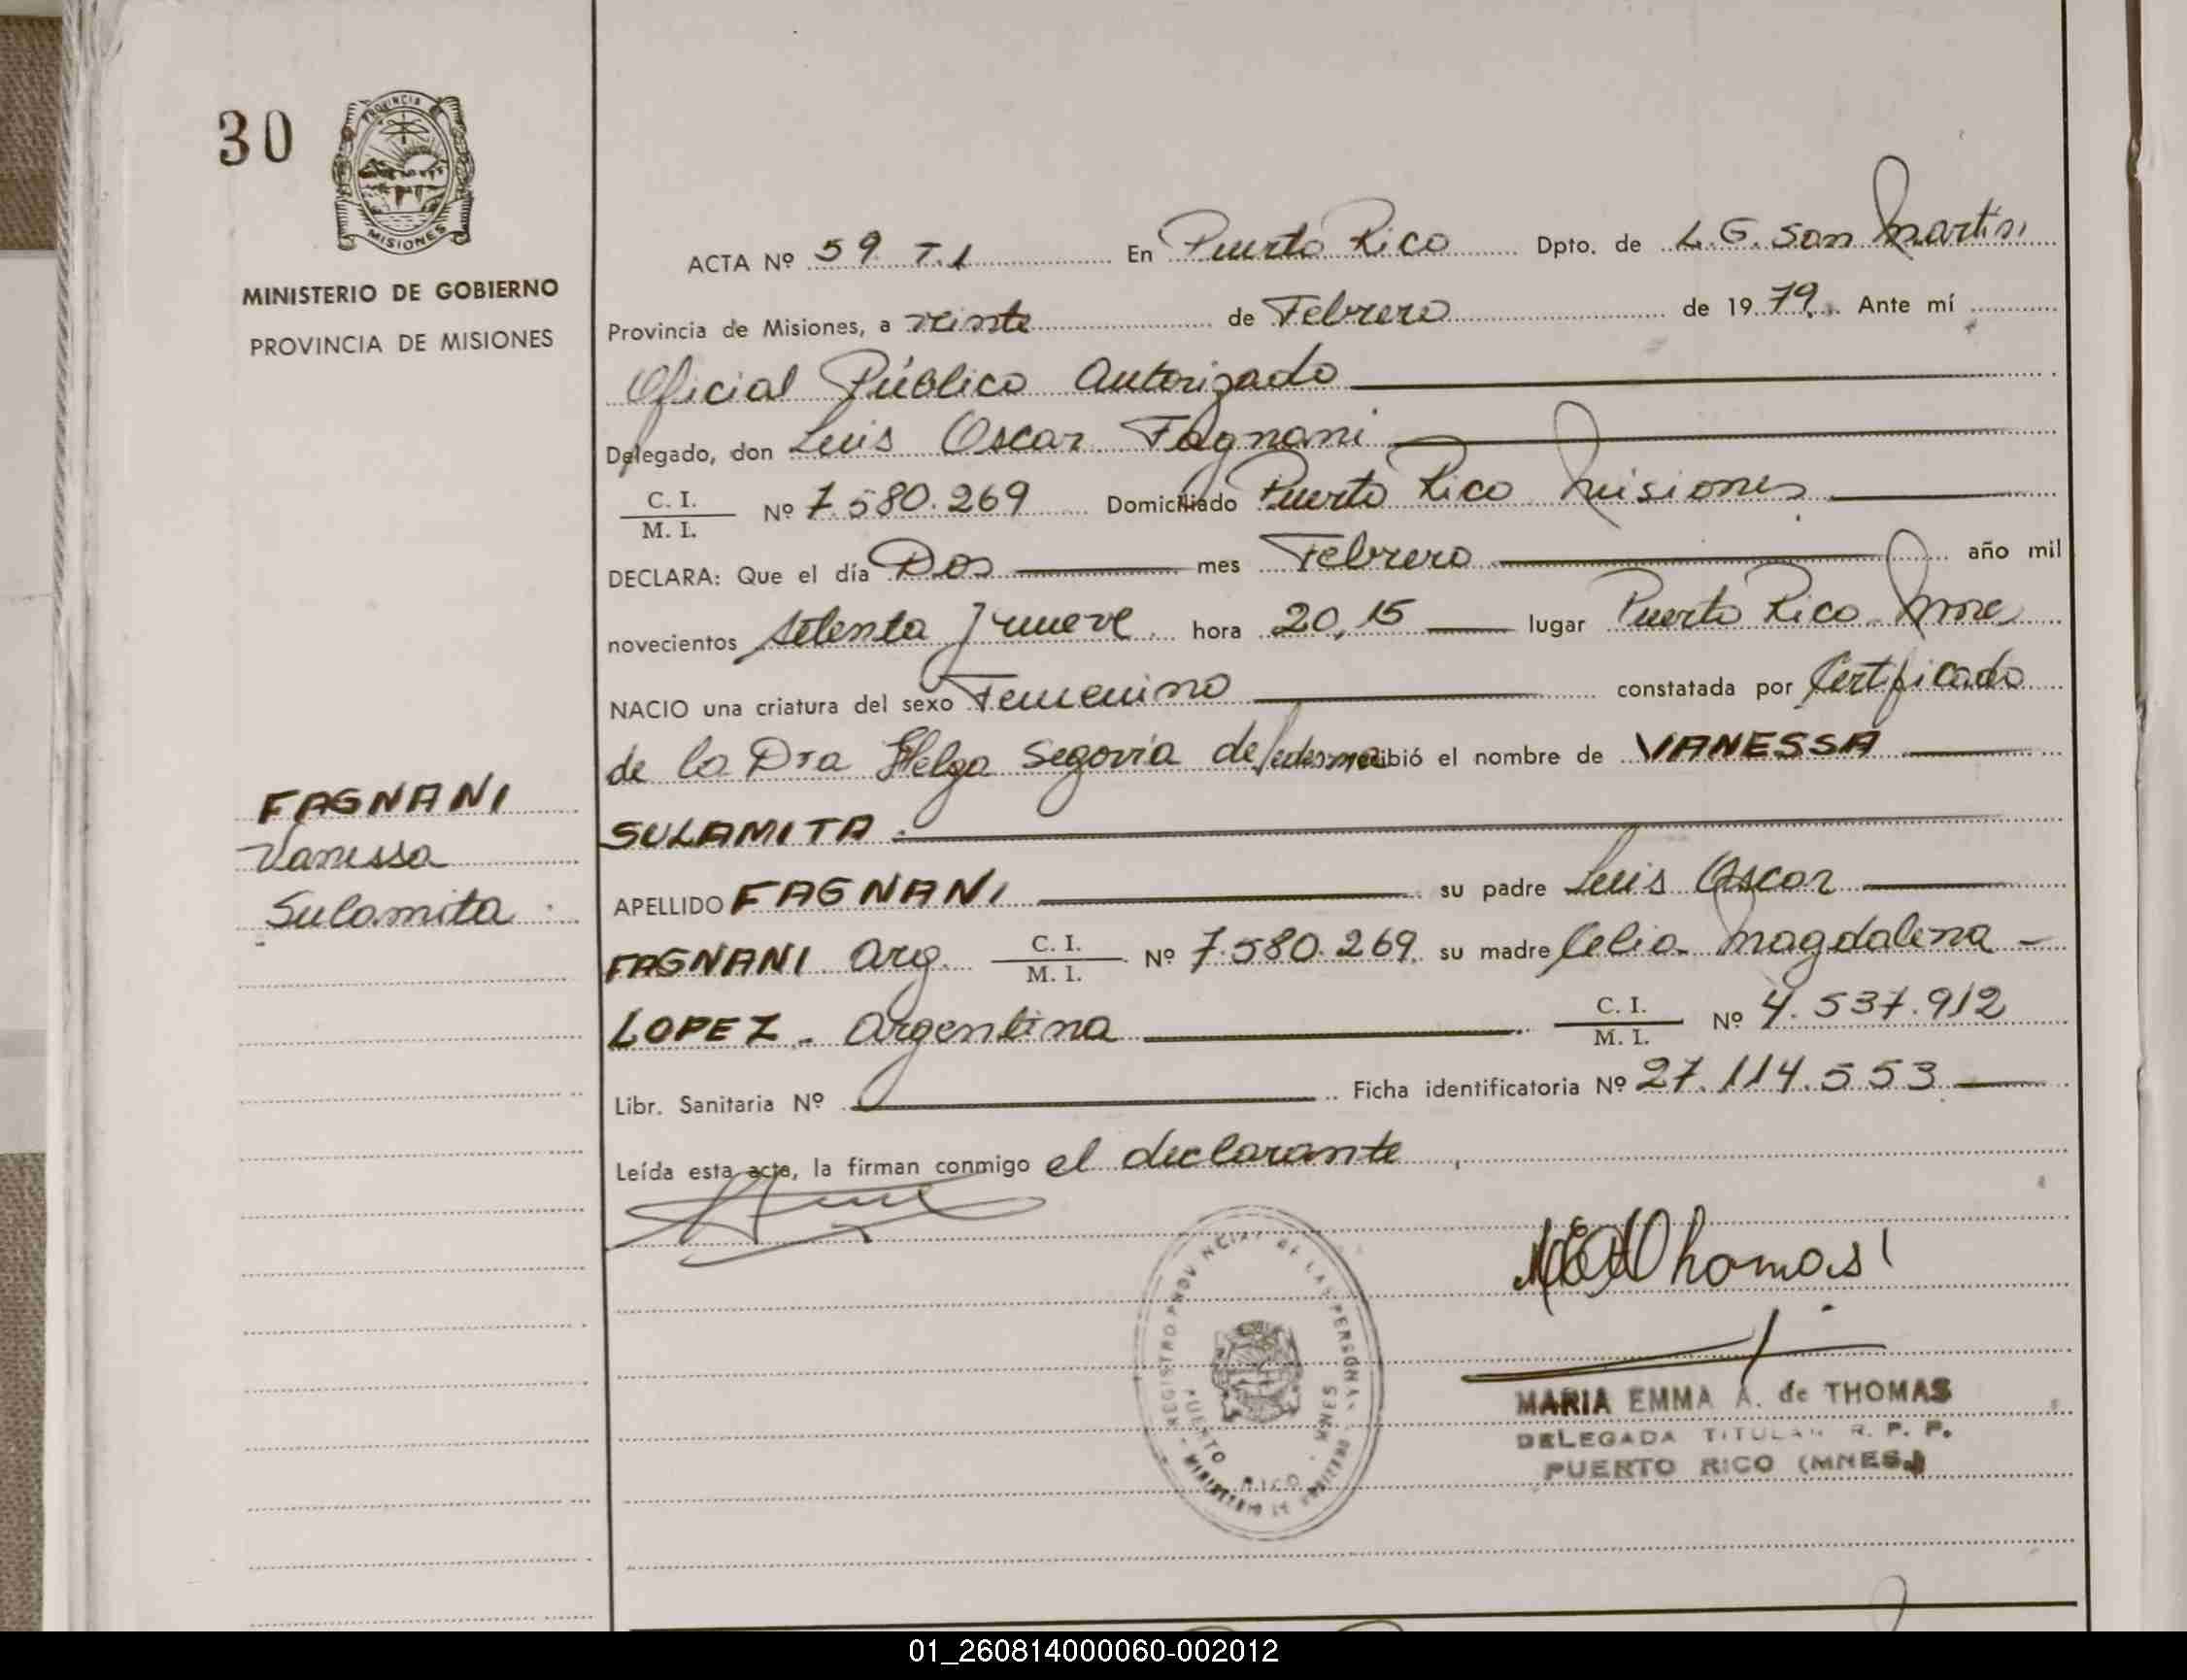 30
PROVINCIA DE
MISIONES
MINISTERIO DE GOBIERNO
PROVINCIA DE MISIONES
FAGNANI
Vanessa
Sulamita
ACTA Nº 59 T.1 En Puerto Rico Dpto. de L.G. San Martín
Provincia de Misiones, a veinte de Febrero de 1979. Ante mí
Oficial Público Autorizado
Delegado, don Luis Oscar Fagnani
C. I.
M. I.
Nº 7.580.269 Domiciliado Puerto Rico Misiones
DECLARA: Que el día Dos mes Febrero año mil
novecientos setenta y nueve hora 20,15 lugar Puerto Rico Mnes
NACIO una criatura del sexo Femenino constatada por Certificado
de la Dra Helga Segovia de Ledesma recibió el nombre de VANESSA
SULAMITA.
APELLIDO FAGNANI su padre Luis Oscar
FAGNANI Arg. C. I. M. I. Nº 7.580.269. su madre Celia Magdalena -
LOPEZ - Argentina C. I. M. I. Nº 4.537.912
Libr. Sanitaria Nº Ficha identificatoria Nº 27.114.553
Leída esta acta, la firman conmigo el declarante,
REGISTRO PROVINCIAL DE LAS PERSONAS
MINISTERIO DE GOBIERNO
PUERTO RICO - MNES
M E A Thomas
MARIA EMMA A. de THOMAS
DELEGADA TITULAR R. P. P.
PUERTO RICO (MNES.)
01_260814000060-002012